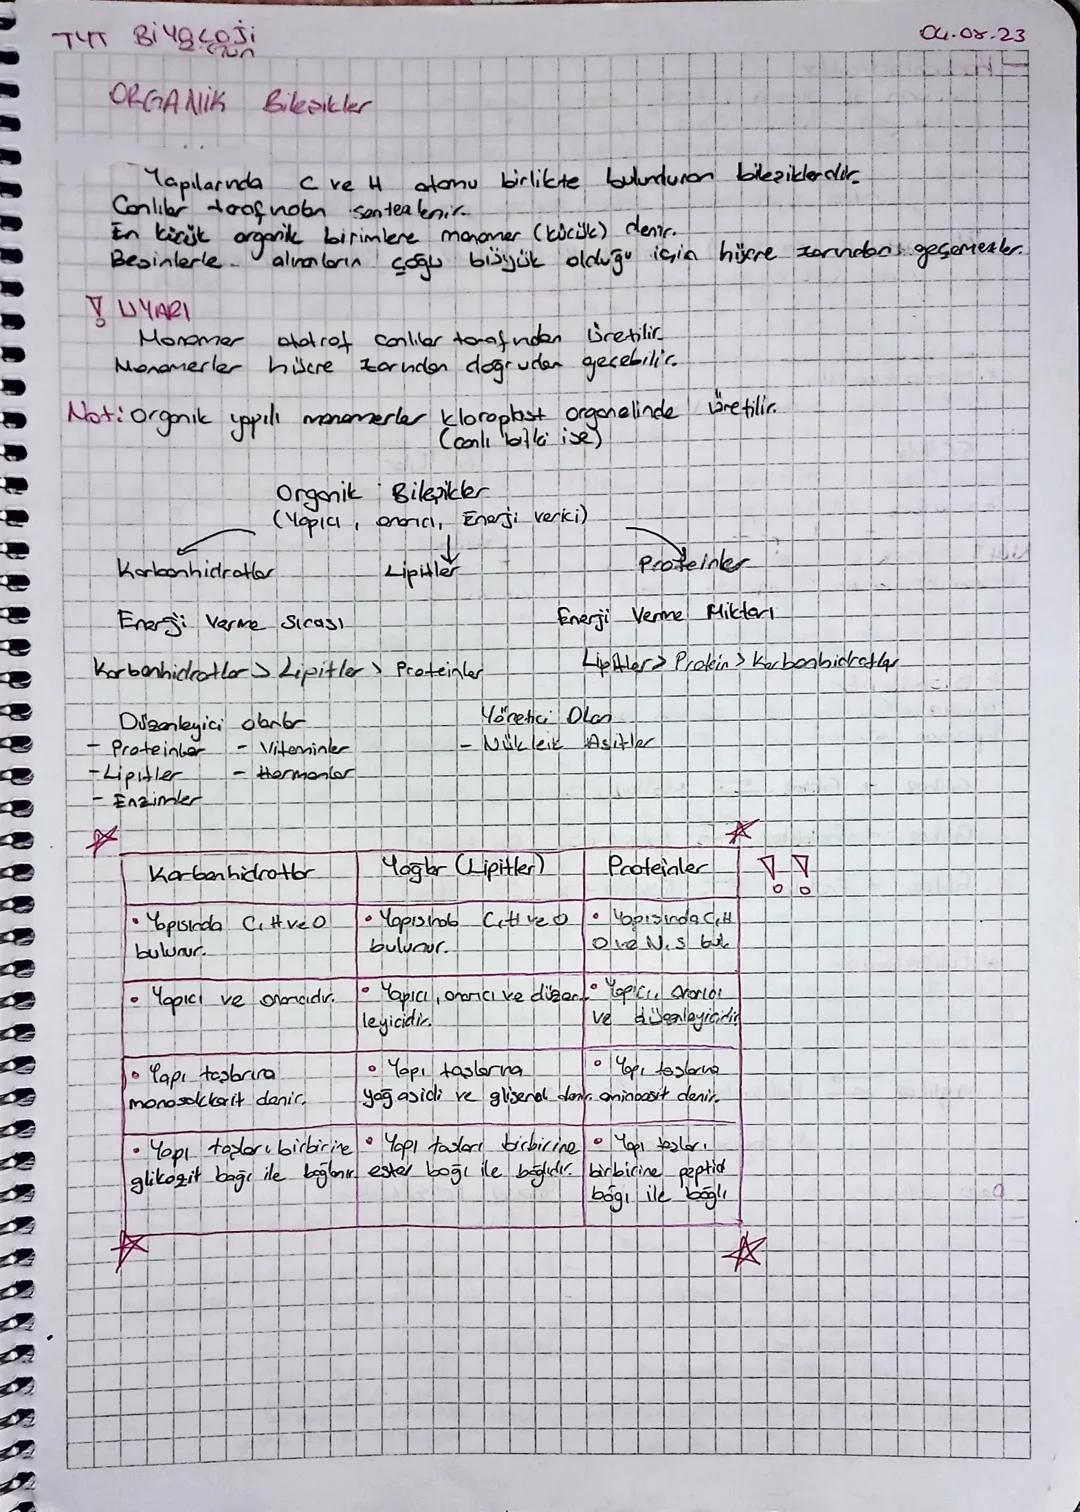 TYT Biyoloji
04.08.23
ORGANİK Bileşikler
Yapılarında C ve H atomu birlikte bulunduran bileşiklerdir.
Canlılar tarafından sentezlenir.
En küçük organik birimlere monomer (küçük) denir.
Besinlerle alınanların çoğu büyük olduğu için hücre zarından geçemezler.
! UYARI
Monomer ototrof canlılar tarafından üretilir.
Monomerler hücre zarından doğrudan geçebilir.
Not: Organik yapılı monomerler kloroplast organelinde üretilir.
(canlı bitki ise)
Organik Bileşikler
(Yapıcı, onarıcı, Enerji verici)
Karbonhidratlar Lipitler Proteinler
Enerji Verme Sırası Enerji Verme Miktarı
Karbonhidratlar > Lipitler > Proteinler Lipitler > Protein > Karbonhidratlar
Düzenleyici olanlar Yönetici Olan
- Proteinler - Vitaminler - Nükleik Asitler
- Lipitler - Hormonlar
- Enzimler
Karbonhidratlar Yağlar (Lipitler) Proteinler !!
• Yapısında C, H ve O • Yapısında C, H ve O • Yapısında C, H
bulunur. bulunur. O ve N, S bul
• Yapıcı ve onarıcıdır. • Yapıcı, onarıcı ve düzen • Yapıcı, onarıcı
leyicidir. ve düzenleyicidir
• Yapı taşlarına • Yapı taşlarına • Yapı taşlarına
monosakkarit denir. yağ asidi ve gliserol denir. aminoasit denir.
• Yapı taşları birbirine • Yapı taşları birbirine • Yapı taşları
glikozit bağı ile bağlanır. ester bağı ile bağlıdır. birbirine peptid
bağı ile bağlı